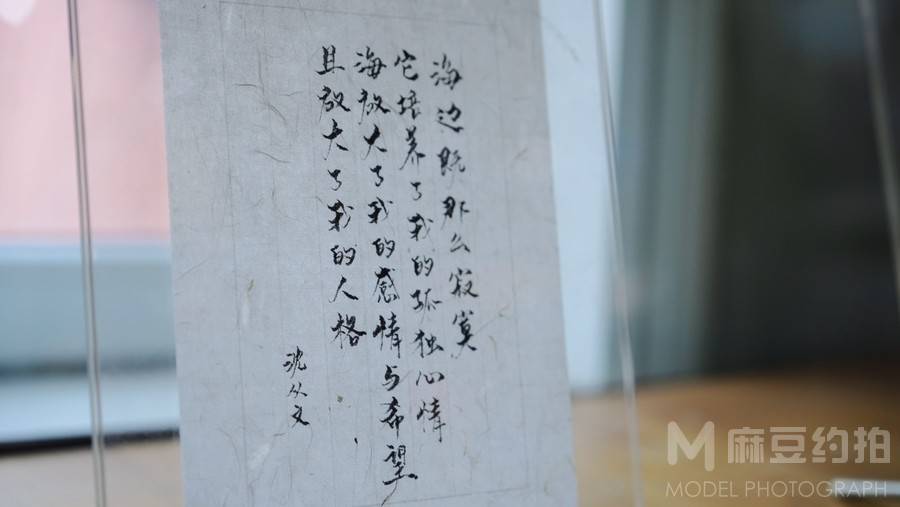 海边既那么寂寞
它培养了我的孤独心情
海放大了我的感情与希望
且放大了我的人格
沈从文
麻豆约拍
MODEL PHOTOGRAPH